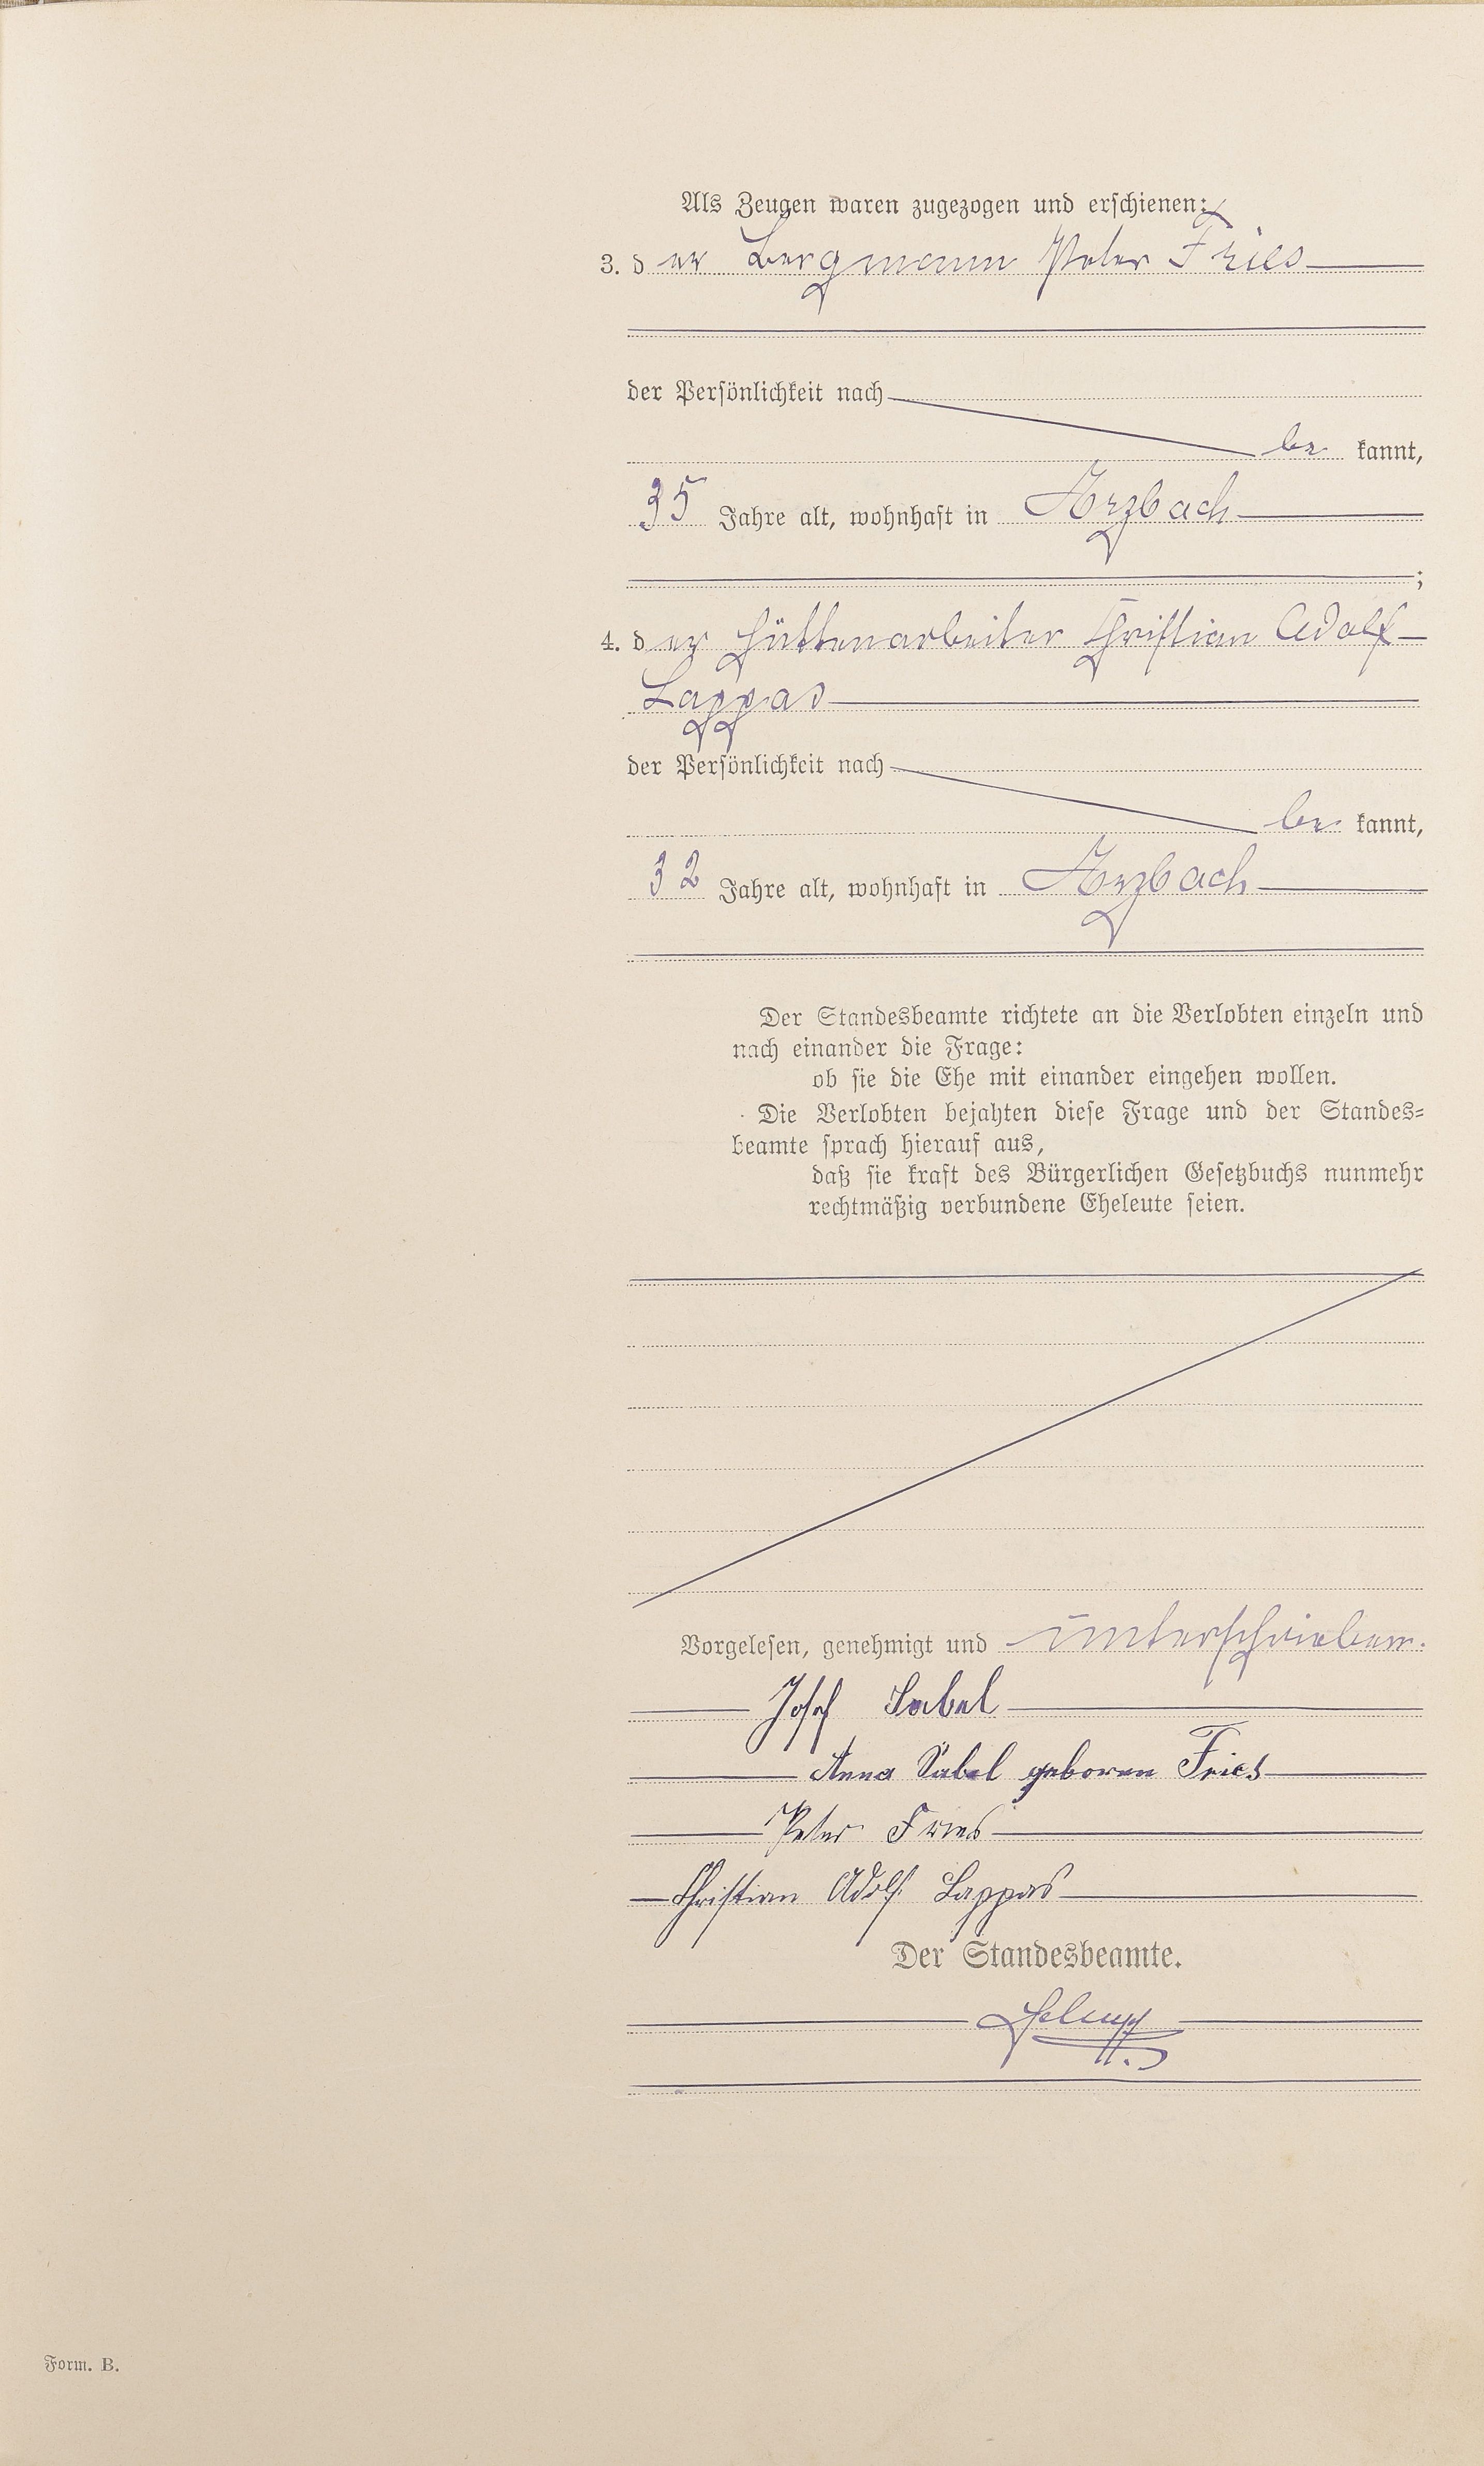 Als Zeugen waren zugezogen und erschienen:
3. der Bergmann Peter Fries
der Persönlichkeit nach
be kannt,
35 Jahre alt, wohnhaft in Arzbach
;
4. der Hüttenarbeiter Christian Adolf
Lappas
der Persönlichkeit nach
be kannt,
32 Jahre alt, wohnhaft in Arzbach
Der Standesbeamte richtete an die Verlobten einzeln und
nach einander die Frage:
ob sie die Ehe mit einander eingehen wollen.
Die Verlobten bejahten diese Frage und der Standes-
beamte sprach hierauf aus,
daß sie kraft des Bürgerlichen Gesetzbuchs nunmehr
rechtmäßig verbundene Eheleute seien.
Vorgelesen, genehmigt und unterschrieben.
Josef Sabel
Anna Sabel geboren Fries
Peter Fries
Christian Adolf Lappas
Der Standesbeamte.
Form. B.